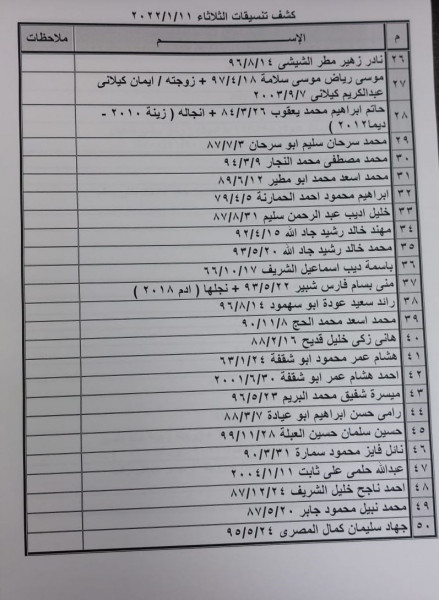 كشف تنسيقات الثلاثاء ٢٠٢٢/١/١١
م الإســـــم ملاحظات
٢٦ نادر زهير مطر الشيشى ٩٦/٨/١٤
٢٧ موسى رياض موسى سلامة ٩٧/٤/١٨ + زوجته / ايمان كيلانى
عبدالكريم كيلانى ٢٠٠٣/٩/٧
٢٨ حاتم ابراهيم محمد يعقوب ٨٤/٣/٢٦ + انجاله ( زينة ٢٠١٠ -
ديما٢٠١٢ )
٢٩ محمد سرحان سليم ابو سرحان ٨٧/٧/٣
٣٠ محمد مصطفى محمد النجار ٩٤/٣/٩
٣١ محمد اسعد محمد ابو مطير ٨٩/٦/١٢
٣٢ ابراهيم محمود احمد الحمارنة ٧٩/٤/٥
٣٣ خليل اديب عبد الرحمن سليم ٨٧/٨/٣١
٣٤ مهند خالد رشيد جاد الله ٩٢/٤/١٥
٣٥ محمد خالد رشيد جاد الله ٩٣/٥/٢٠
٣٦ باسمة ديب اسماعيل الشريف ٦٦/١٠/١٧
٣٧ منى بسام فارس شبير ٩٣/٥/٢٢ + نجلها ( ادم ٢٠١٨ )
٣٨ رائد سعيد عودة ابو سمهود ٩٦/٨/١٤
٣٩ محمد اسعد محمد الحج ٩٠/١١/٨
٤٠ هانى زكى خليل قديح ٨٨/٢/١٦
٤١ هشام عمر محمود ابو شقفة ٦٣/١/٢٤
٤٢ احمد هشام عمر ابو شقفة ٢٠٠١/٦/٣٠
٤٣ ميسرة شفيق محمد البريم ٩٦/٥/٢٣
٤٤ رامى حسن ابراهيم ابو عيادة ٨٨/٣/٧
٤٥ حسين سلمان حسين العبلة ٩٩/١١/٢٨
٤٦ نائل فايز محمود سمارة ٩٠/٣/٣١
٤٧ عبدالله حلمى على ثابت ٢٠٠٤/١/١١
٤٨ احمد ناجح خليل الشريف ٨٧/١٢/٢٤
٤٩ محمد نبيل محمود جابر ٨٧/٥/٢٠
٥٠ جهاد سليمان كمال المصرى ٩٥/٥/٢٤